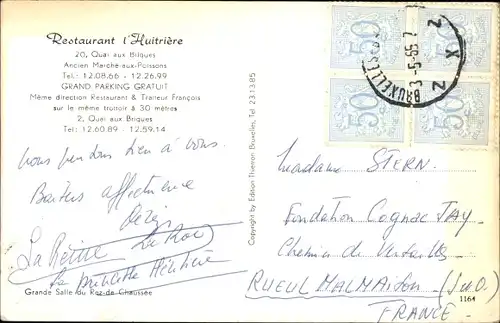 Restaurant l'Huitrière
20, Quai aux Bilques
Ancien Marché-aux-Poissons
Tel.: 12.08.66 - 12.26.99
GRAND PARKING GRATUIT
Même direction Restaurant & Traiteur François
sur le même trottoir à 30 mètres
2, Quai aux Briques
Tel.: 12.60.89 - 12.59.14
Nous pendons bien à vous.
affectueuse
La Reine Le Roi
La
Grande Salle du Rez-de-Chaussée
Copyright by Edition Thieren Bruxelles, Tel 23.13.85
50 50
50 50
BRUXELLES
Madame STERN.
Fondation Cognac JAY
Chemin de Versailles
RUEIL MALMAISON (S.u.O.)
FRANCE
1164